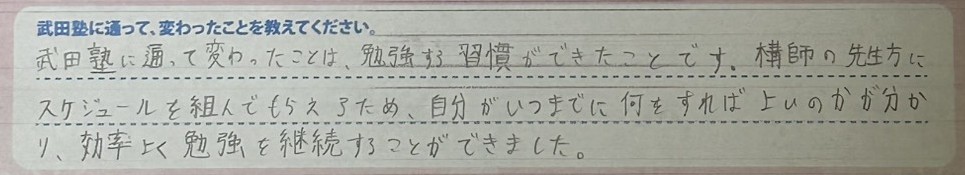 武田塾に通って、変わったことを教えてください。
武田塾に通って変わったことは、勉強する習慣ができたことです。講師の先生方に
スケジュールを組んでもらえるため、自分がいつまでに何をすれば良いのかが分か
り、効率よく勉強を継続することができました。